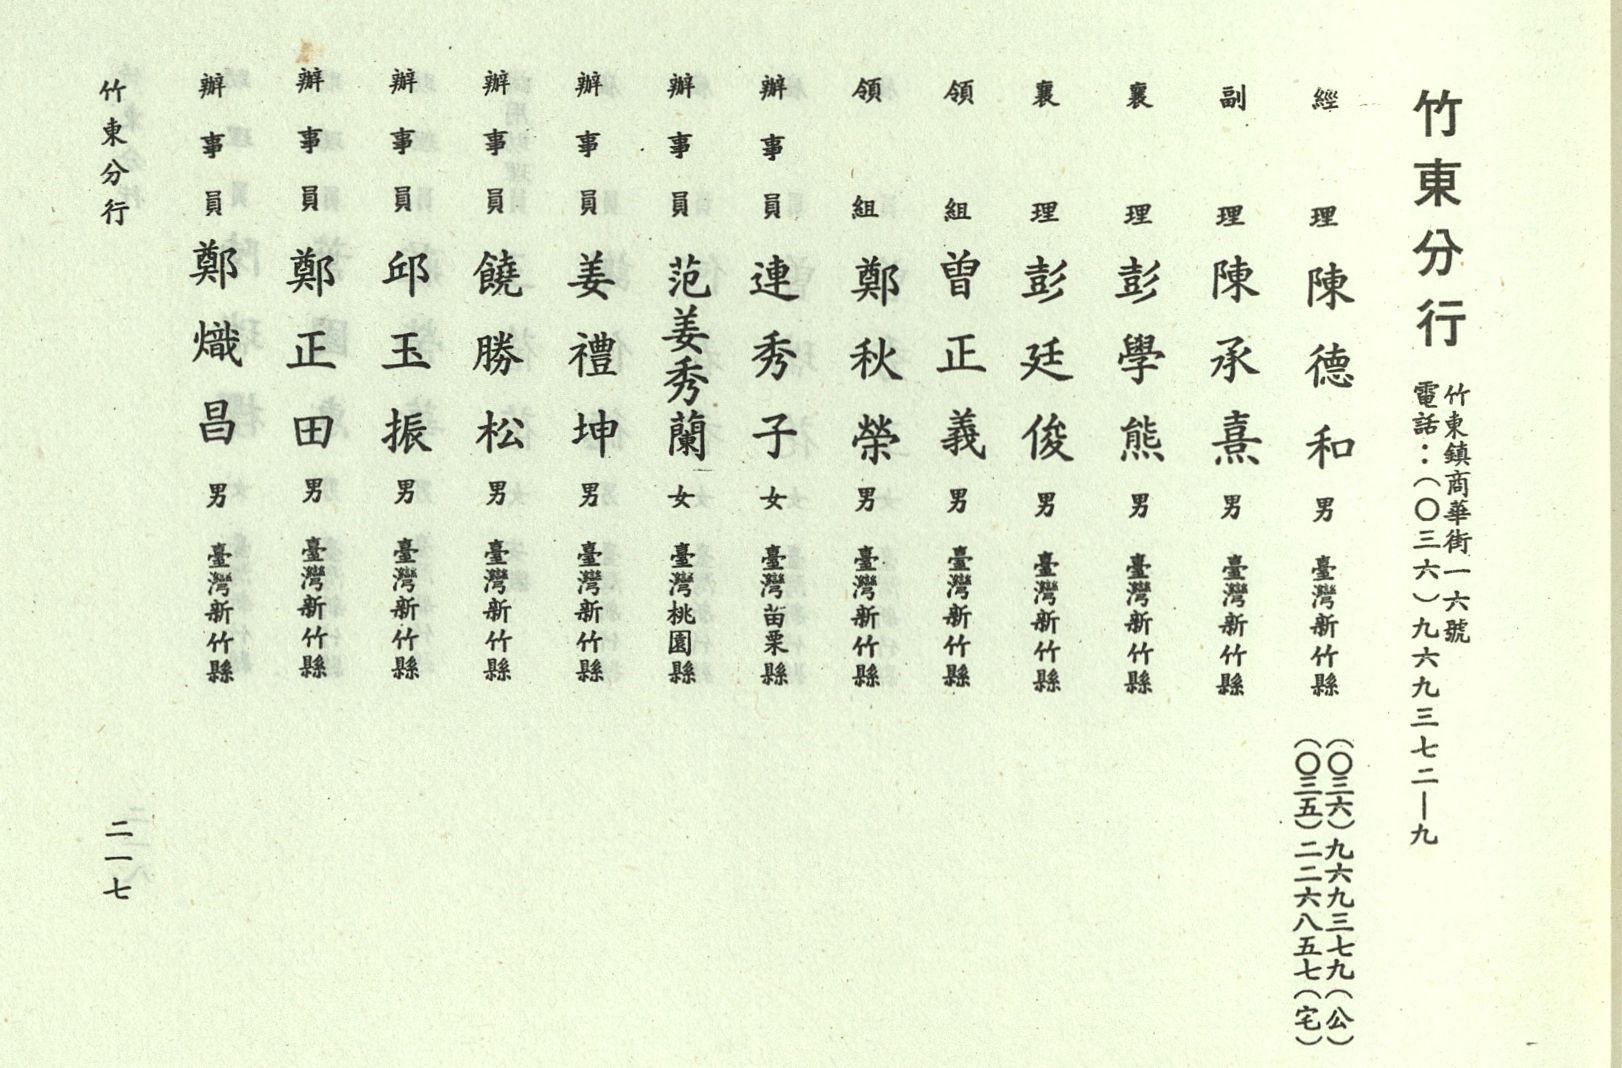 竹東分行
竹東鎮商華街一六號
電話：（〇三六）九六九三七二—九
經理 陳德和 男 臺灣新竹縣 （〇三六）九六九三七九（公）
（〇三五）二二六八五七（宅）
副理 陳承熹 男 臺灣新竹縣
襄理 彭學熊 男 臺灣新竹縣
襄理 彭廷俊 男 臺灣新竹縣
領組 曾正義 男 臺灣新竹縣
領組 鄭秋榮 男 臺灣新竹縣
辦事員 連秀子 女 臺灣苗栗縣
辦事員 范姜秀蘭 女 臺灣桃園縣
辦事員 姜禮坤 男 臺灣新竹縣
辦事員 饒勝松 男 臺灣新竹縣
辦事員 邱玉振 男 臺灣新竹縣
辦事員 鄭正田 男 臺灣新竹縣
辦事員 鄭熾昌 男 臺灣新竹縣
竹東分行
二一七